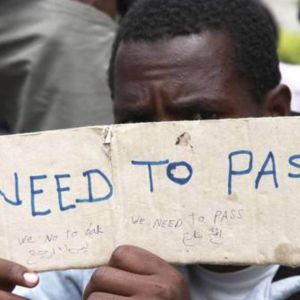 NEED TO PAS
We NO to
We NEED to PASS